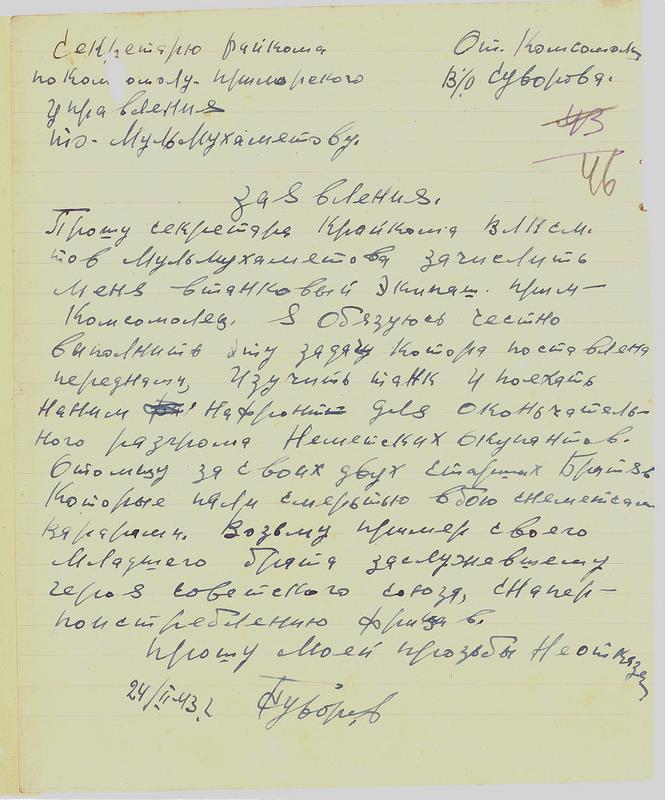 Секретарю райкома
по комсомолу. приморского
управления
то. Мульмухаметову.
От. Комсомольц
В/о Суворова.
43
46
заявления.
Прошу секретара Крайкома ВЛКсм.
тов Мульмухаметова зачислить
меня втанковый Экипаш. прим-
Комсомолец. Я Обязуюсь честно
выполнить эту задачу котора поставлена
переднами, Изучить танк и поехать
наним На фронт для окончатель-
ного разгрома Неметских окупантов.
Отомщу за своих двух старших Братьев
Которые пали смертью вбою снеметскими
варарами. Возьму пример своего
Младшего брата заслужевшему
героя советского союза, снапер-
поистреблению фрицев.
прошу моей прозьбы Неотказа
24/II-43.г Суворов